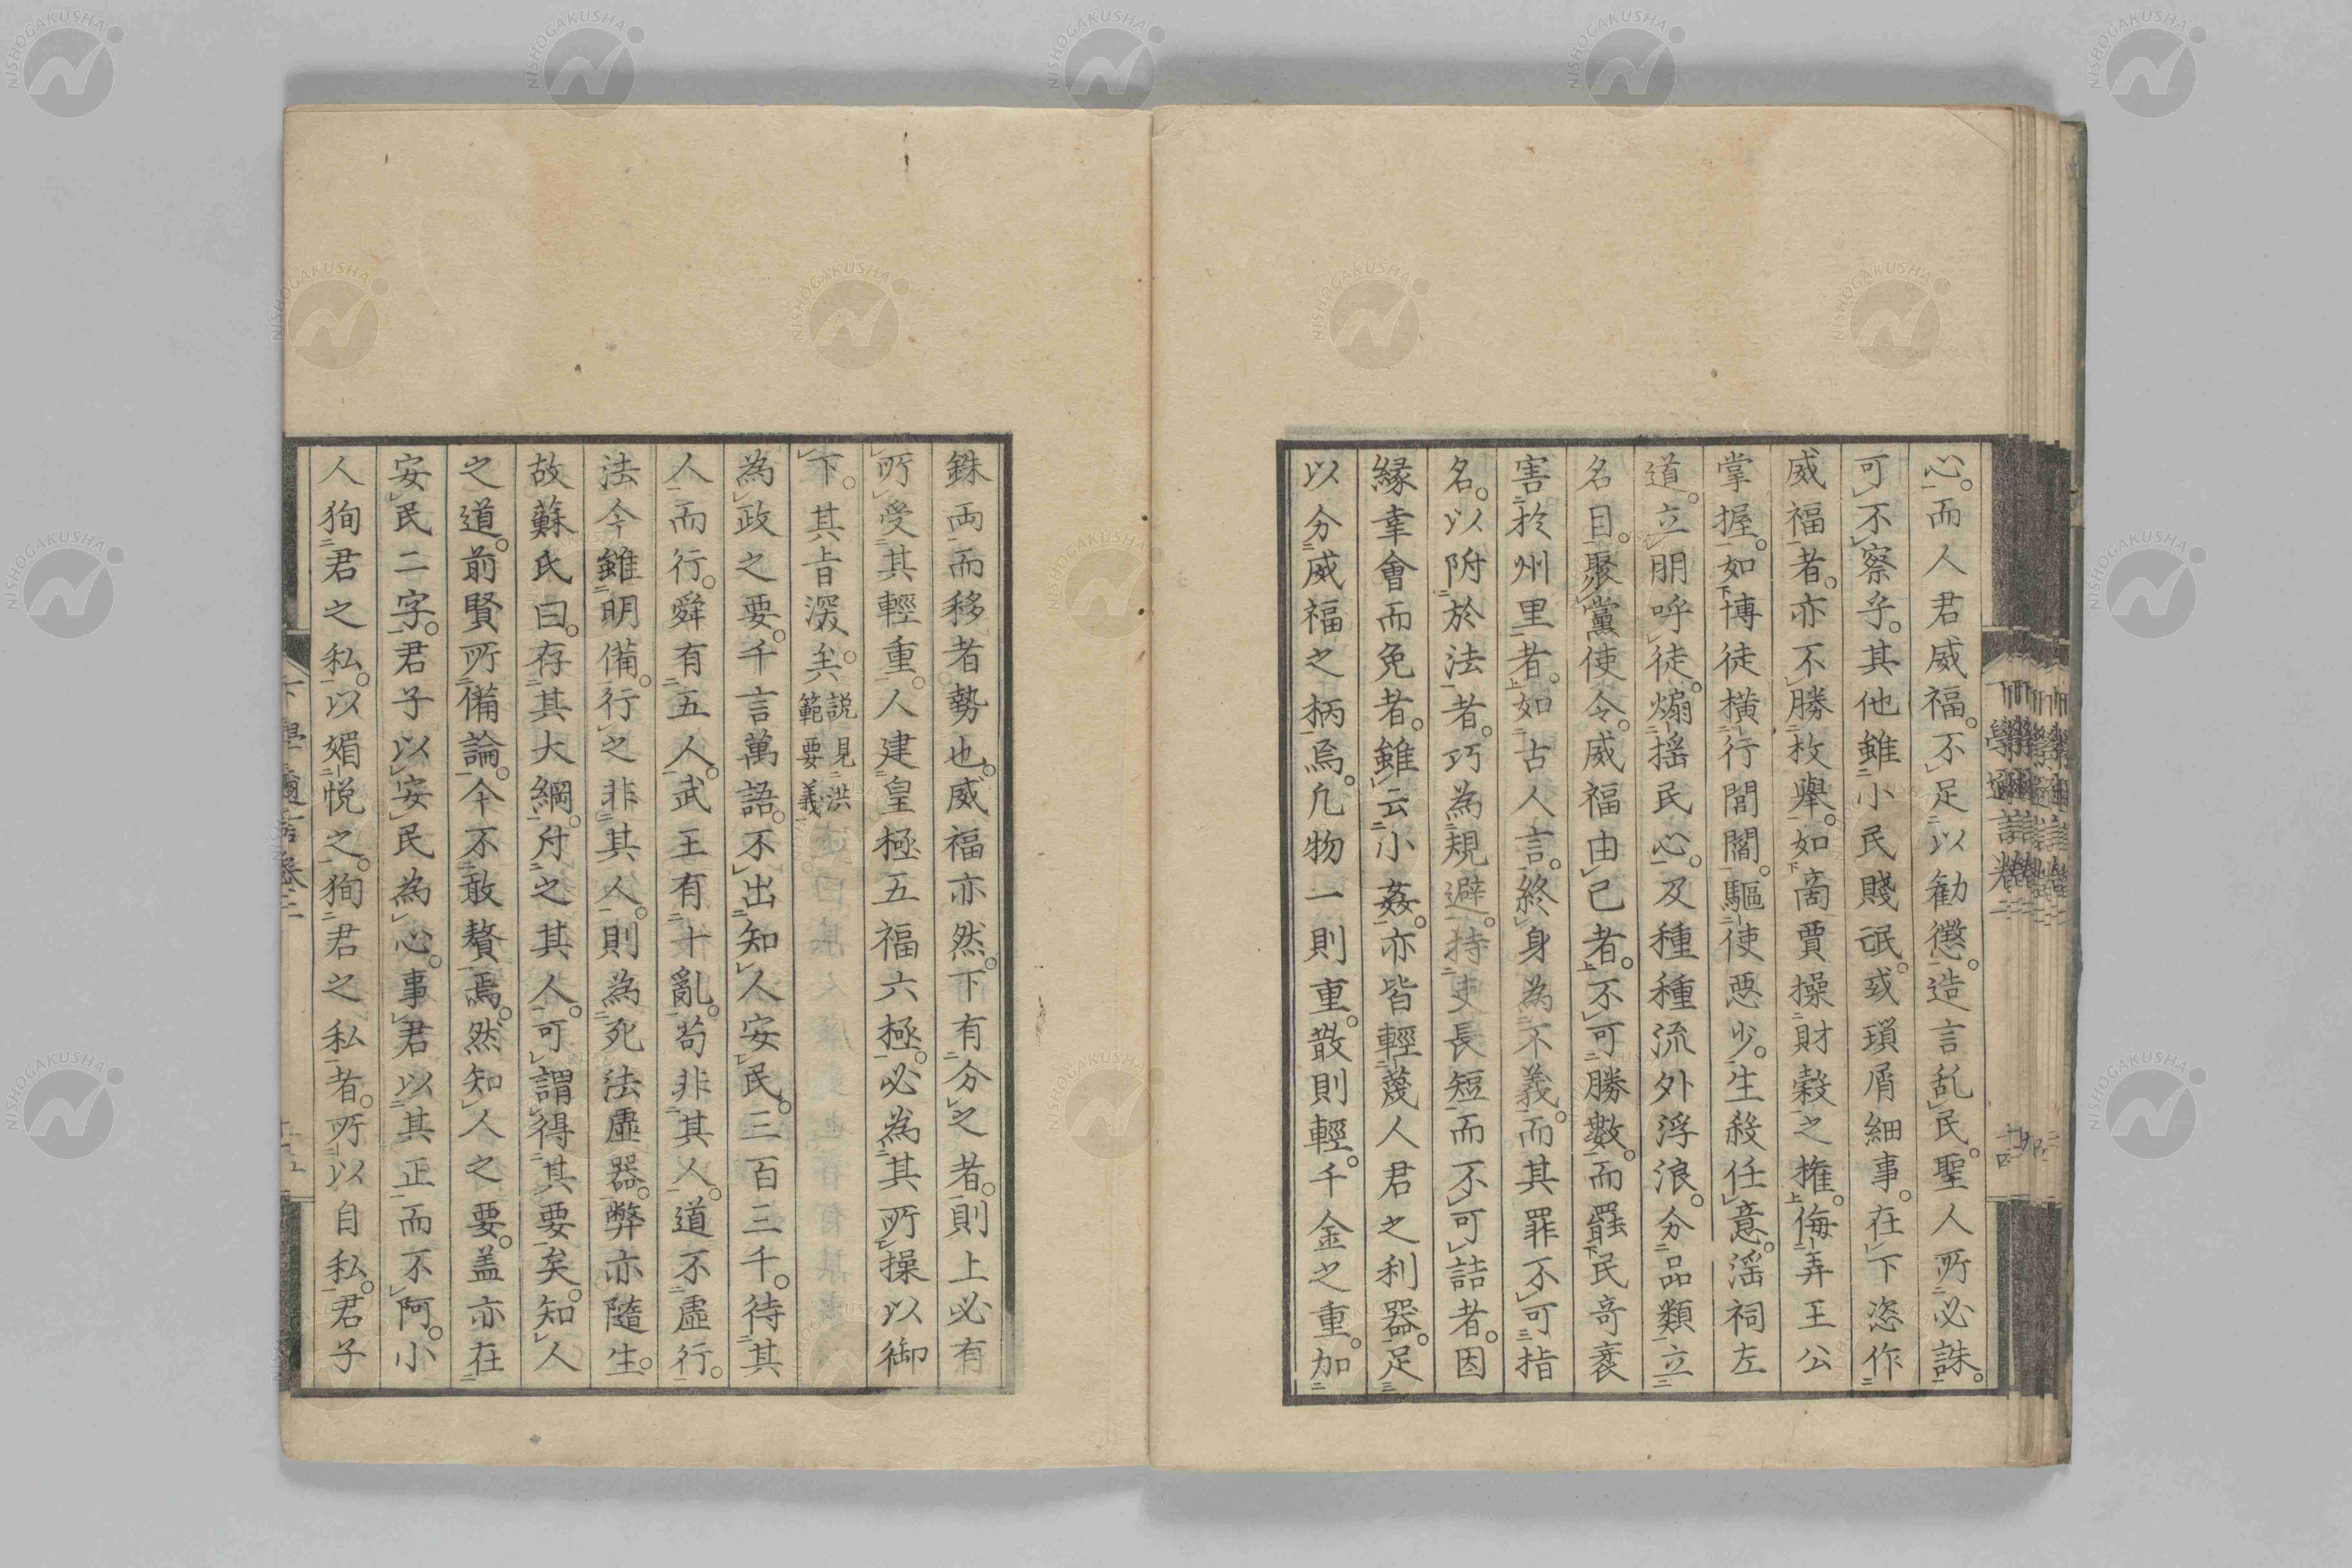 心。而人君威福。不足以勧懲。造言乱民。聖人所必誅。
可不察乎。其他雖小民賤氓。或瑣屑細事。在下恣作
威福者。亦不勝枚舉。如啇賈操財穀之権。侮弄王公
掌握。如博徒橫行閭閻。驅使惡少。生殺任意。淫祠左
道。立朋呼徒。煽揺民心。及種種流外浮浪。分品類立
名目。聚黨使令。威福由己者。不可勝數。而罷民奇袤
害於州里者。如古人言。終身為不義。而其罪不可指
名。以附於法者。巧為規避。持吏長短。而不可詰者。因
縁幸會而免者。雖云小姦。亦皆輕蔑人君之利器。足
以分威福之柄焉。凡物一則重。散則輕。千金之重。加
銖両而移者勢也。威福亦然。下有分之者。則上必有
所受其輕重。人建皇極五福六極。必為其所操以御
下。其旨深矣。説見洪範要義
為政之要。千言萬語。不出知人安民。三百三千。待其
人而行。舜有五人。武王有十亂。苟非其人。道不虛行。
法令雖明備。行之非其人。則為死法虛器。弊亦隨生。
故蘇氏曰。存其大綱。付之其人。可謂得其要矣。知人
之道。前賢所備論。今不敢贅焉。然知人之要。盖亦在
安民二字。君子以安民為心。事君以其正而不阿。小
人狥君之私。以媚悦之。狥君之私者。所以自私。君子